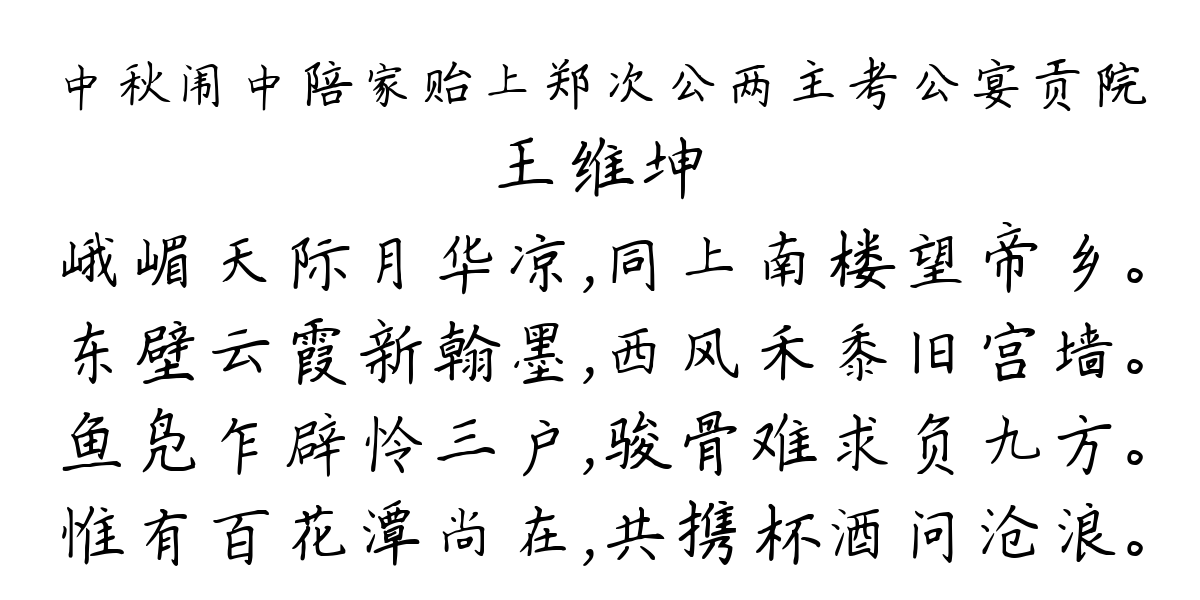 中秋闹中陪家贻上郑次公两主考公宴贡院
王维坤
峨嵋天际月华凉,同上南楼望帝乡。
东壁云霞新翰墨,西风禾黍旧宫墙。
鱼凫乍辟怜三户,骏骨难求负九方。
惟有百花潭尚在,共携杯酒问沧浪。